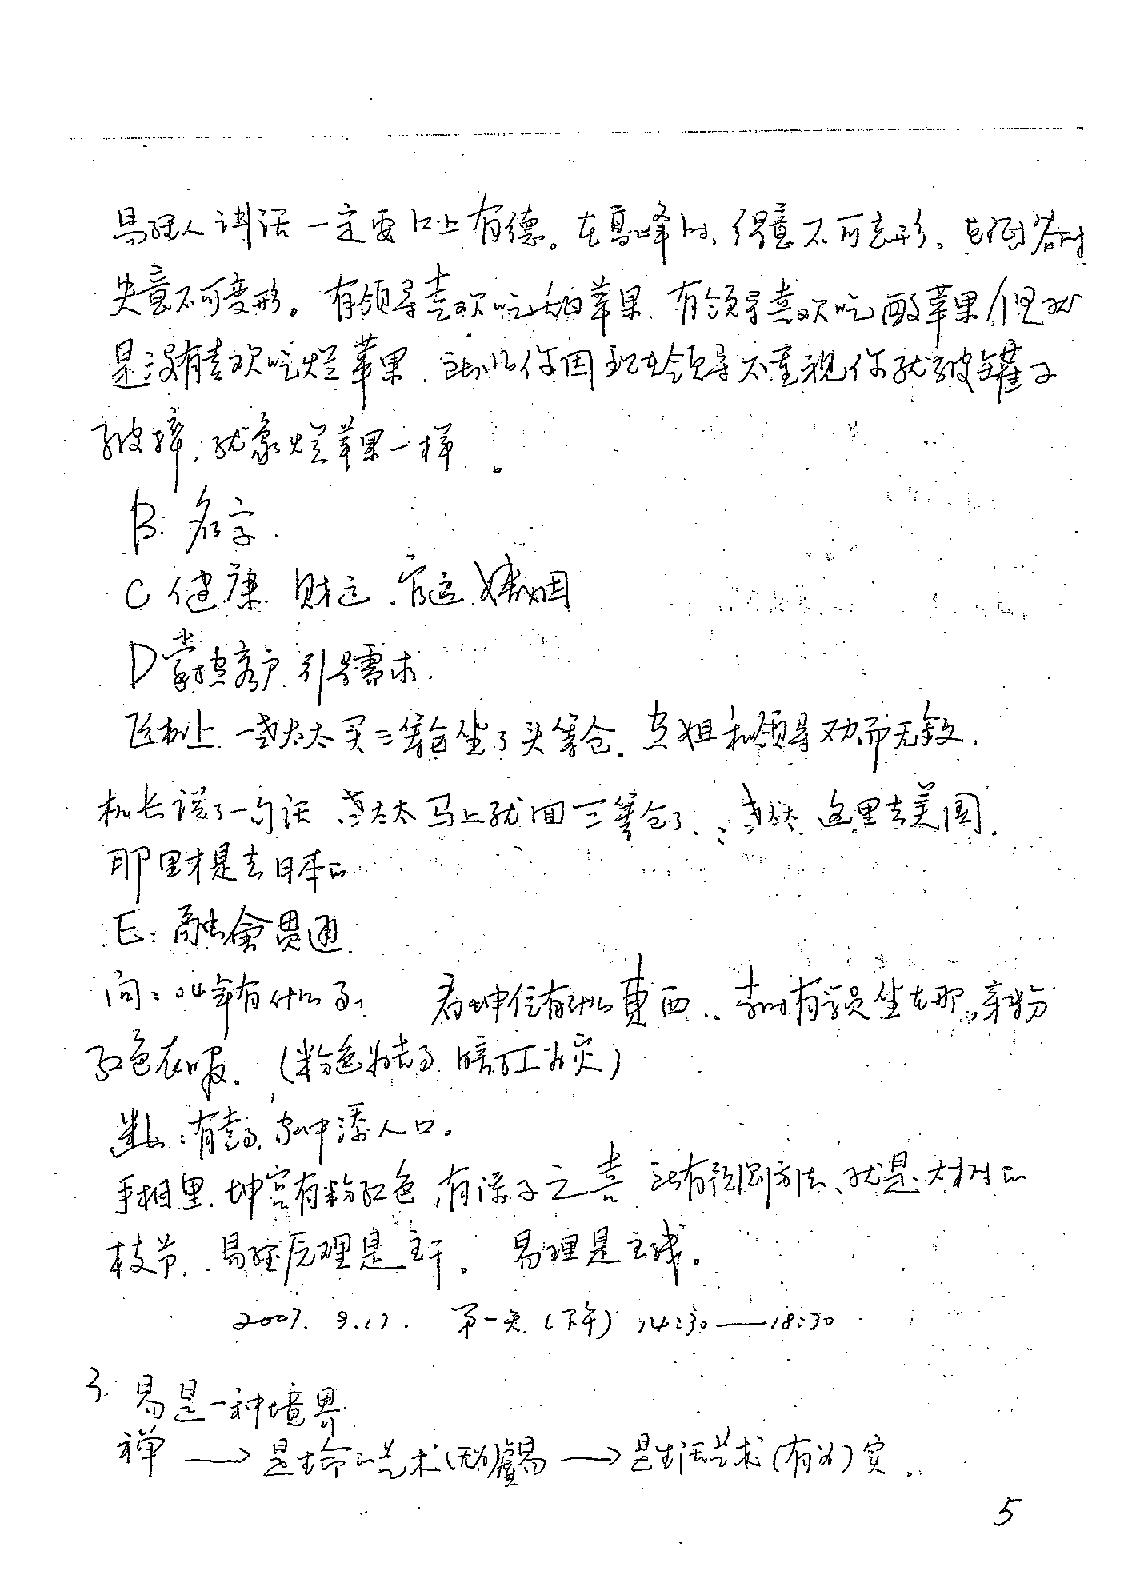 易理人讲话一定要口上有德。在高峰时，得意不可忘形。在低谷时
失意不可变形。有领导喜欢吃甜苹果，有领导喜欢吃酸苹果，但就
是没有喜欢吃烂苹果，所以你因现在领导不重视你就破罐子
破摔，就象烂苹果一样。
B：名字.
C 健康 财运.官运.婚姻
D 客户.引导需求.
飞机上.一老太太买三等却坐了头等仓.空姐和领导劝而无效.
机长说了一句话 老太太马上就回三等仓了.：老太太 这里去美国.
那里才是去日本的
E：融會贯通
问：04年有什么事， 看坤位有什么東西.. 有学员坐在那。穿粉
红色衣服. (粉色为喜事.暗红为灾)
断：有喜事，家中添人口。
手相里.坤宫有粉红色，有得子之喜 所有预测方法、就是大树的
枝节. 易经原理是主干。 易理是主线。
2007. 9.17. 第一天(下午) 14:30——18:30
3. 易是一种境界
禅 → 是生命的艺术(无为)虚 易 → 是生活艺术(有为)实..
5